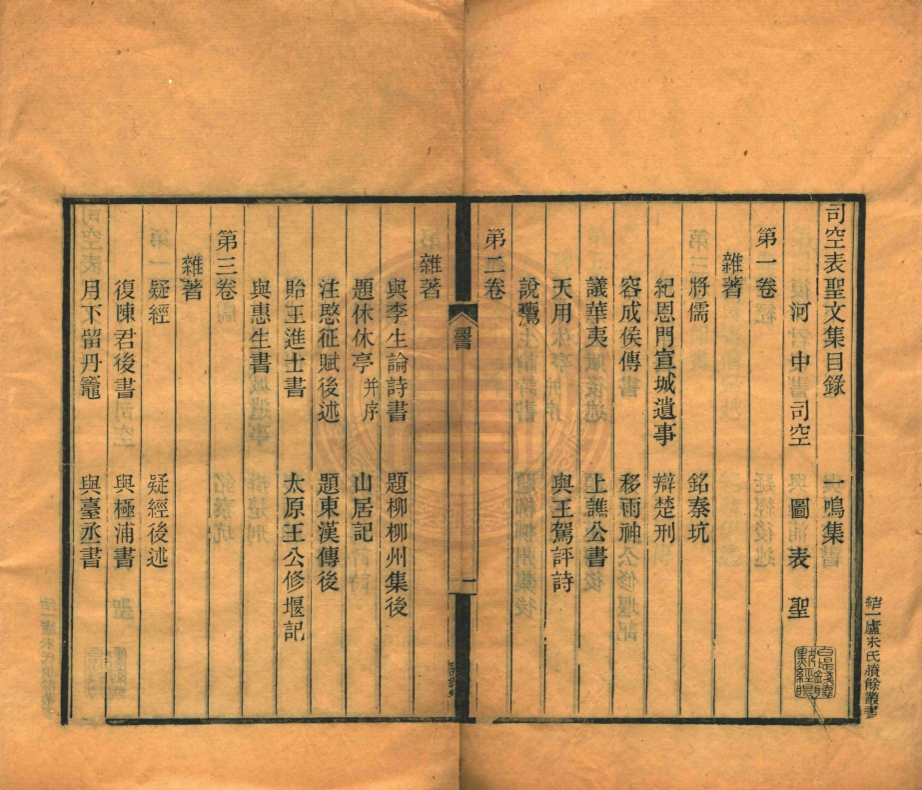 司空表聖文集目錄 一鳴集
河中司空圖表聖
第一卷
雜著
將儒 銘秦坑
紀恩門宣城遺事 辯楚刑
容成侯傳 移雨神
議華夷 上譙公書
天用 與王駕評詩
說鷰
第二卷
雜著
與李生論詩書 題柳柳州集後
題休休亭 并序 山居記
注愍征賦後述 題東漢傳後
貽王進士書 太原王公修堰記
與惠生書
第三卷
雜著
疑經 疑經後述
復陳君後書 與極浦書
月下留丹竈 與臺丞書
結一廬朱氏賸餘叢書
一